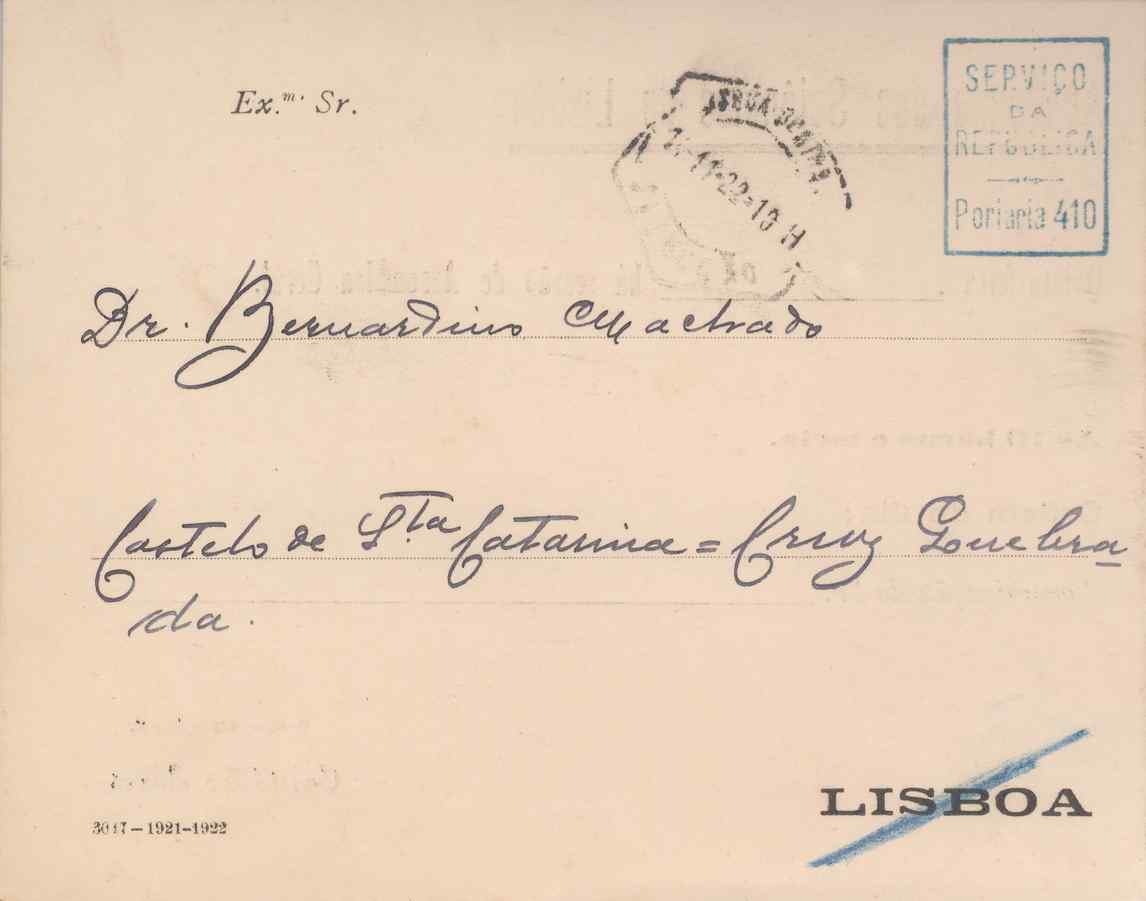 Ex.m. Sr.
LISBOA CENTRAL
11-22-10 H
SERVIÇO
DA
REPUBLICA
Portaria 410
Dr. Bernardino Machado
Castelo de Sta Catarina = Cruz Quebra
da.
LISBOA
3017-1921-1922